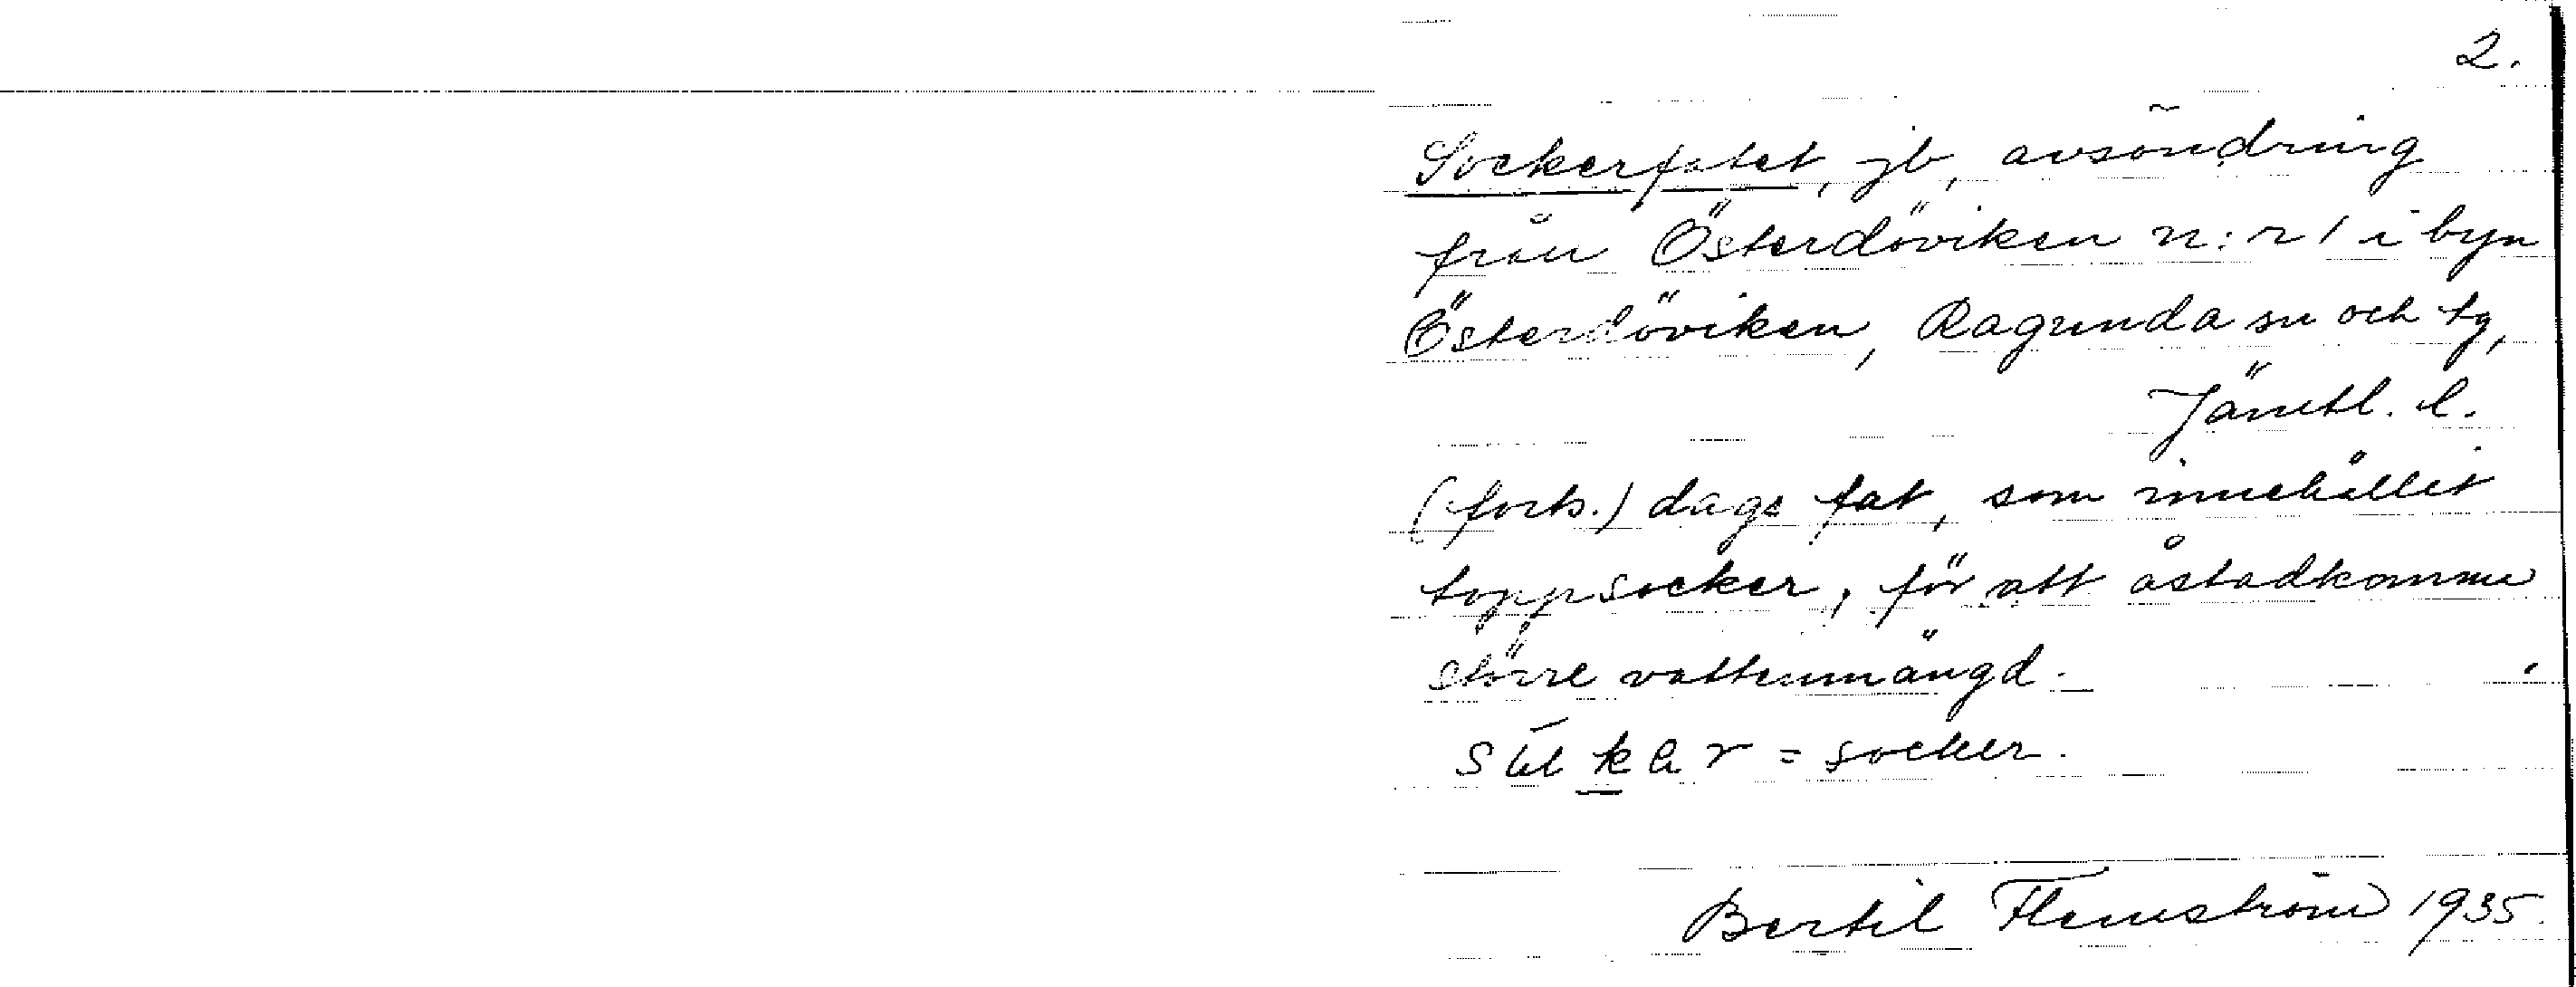 2.
Sockerfatet, jb, avsöndring
från Österdöviken n:r 1 i byn
Österdöviken, Ragunda sn och tg,
Jämtl. l.
(forts.) dags fat, som innehållit
toppsocker, för att åstadkomma
större vattenmängd.
= socker.
Bertil Flemström 1935.